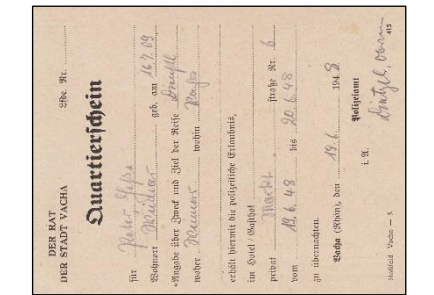 DER RAT
DER STADT VACHA Lfde. Nr.
Quartierschein
für Peter
Wohnort Weimar geb. am 16.7.09
*Angabe über Zweck und Ziel der Reise
woher Weimar wohin
erhält hiermit die polizeiliche Erlaubnis,
im Hotel/Gasthof
privat Markt straße Nr. 6
vom 19.6.48 bis 20.6.48
zu übernachten.
Vacha (Rhön), den 19.6. 1948
Polizeiamt
i. A.
Hosfeld Vacha — 3. 415